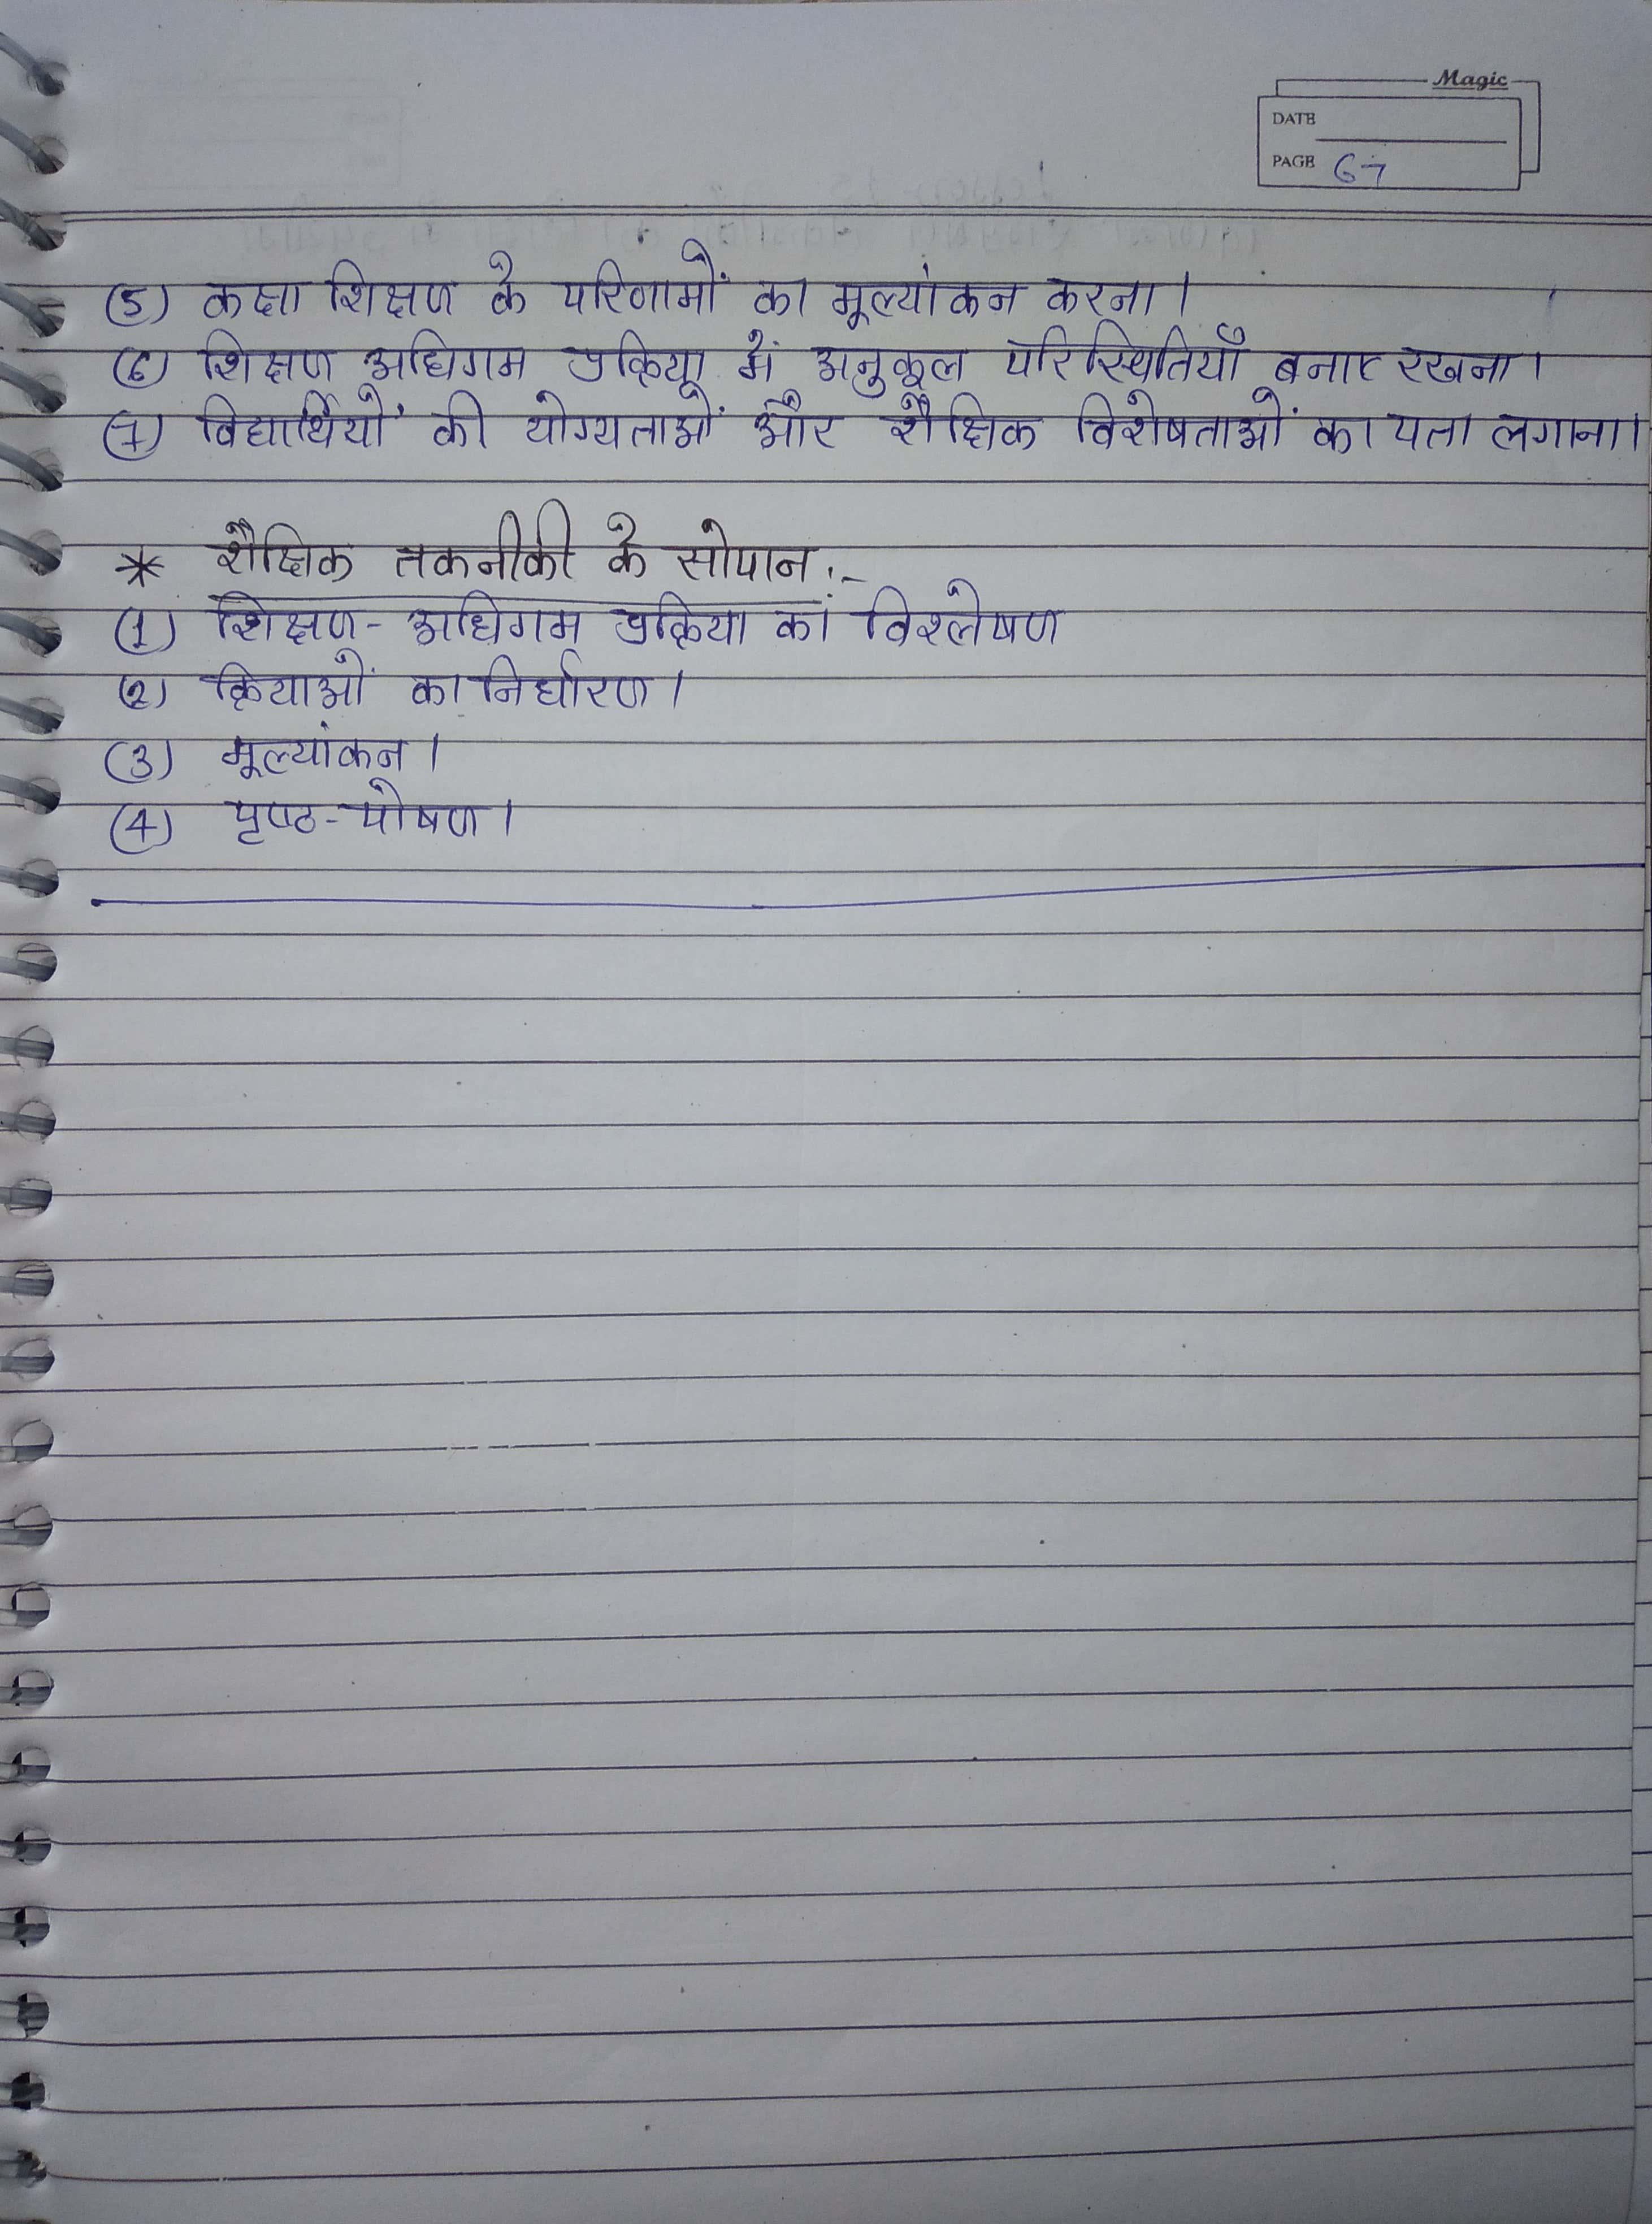 Magic
DATE
PAGE 67
(5) कक्षा शिक्षण के परिणामों का मूल्यांकन करना।
(6) शिक्षण अधिगम प्रक्रिया में अनुकूल परिस्थितियाँ बनाए रखना।
(7) विद्यार्थियों की योग्यताओं और शैक्षिक विशेषताओं का पता लगाना।
* शैक्षिक तकनीकी के सोपान :-
(1) शिक्षण - अधिगम प्रक्रिया का विश्लेषण
(2) क्रियाओं का निर्धारण।
(3) मूल्यांकन।
(4) पृष्ठ-पोषण।